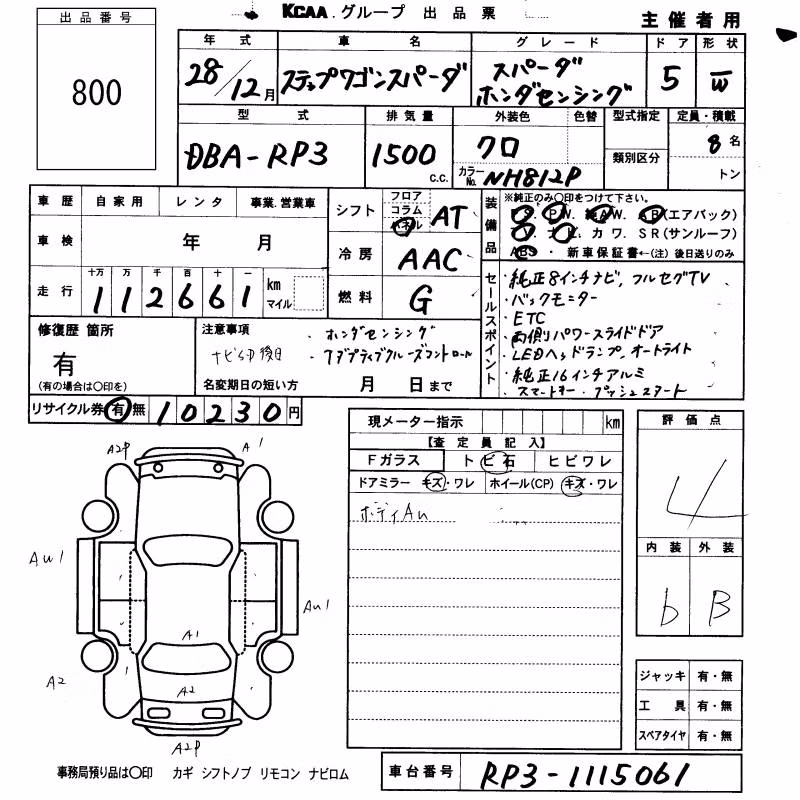 KCAA.グループ 出品票
主催者用
出品番号
800
年式 車名 グレード ドア 形状
28/12月 ステップワゴンスパーダ スパーダ ホンダセンシング 5 W
型式 排気量 外装色 色替 型式指定 定員・積載
DBA-RP3 1500 c.c. クロ カラーNo. NH812P 類別区分 8名 トン
車歴 自家用 レンタ 事業.営業車
車検 年 月
走行 十万 万 千 百 十 一
112661 km マイル
シフト フロア コラム パネル AT
冷房 AAC
燃料 G
装備品 ※純正のみ〇印をつけて下さい。
P.S. P.W. AW. AB(エアバック)
TV. ナビ. カワ. SR(サンルーフ)
ABS・ 新車保証書←(注)後日送りのみ
セールスポイント
・純正8インチナビ, フルセグTV
・バックモニター
・ETC
・両側パワースライドドア
・LEDヘッドランプ, オートライト
・純正16インチアルミ
・スマートキー・プッシュスタート
修復歴 箇所
有
(有の場合は〇印を)
注意事項
・ホンダセンシング
ナビSD後日 ・アダプティブクルーズコントロール
名変期日の短い方 月 日まで
リサイクル券 有 無 10230円
現メーター指示 km
【査定員記入】
Fガラス トビ石 ヒビワレ
ドアミラー キズ・ワレ ホイール(CP) キズ・ワレ
ボディAu
評価点
4
内装 外装
b B
A2P A1
Au1
Au1
A1
A2 A2
A2P
ジャッキ 有・無
工具 有・無
スペアタイヤ 有・無
事務局預り品は〇印 カギ シフトノブ リモコン ナビロム
車台番号 RP3-1115061